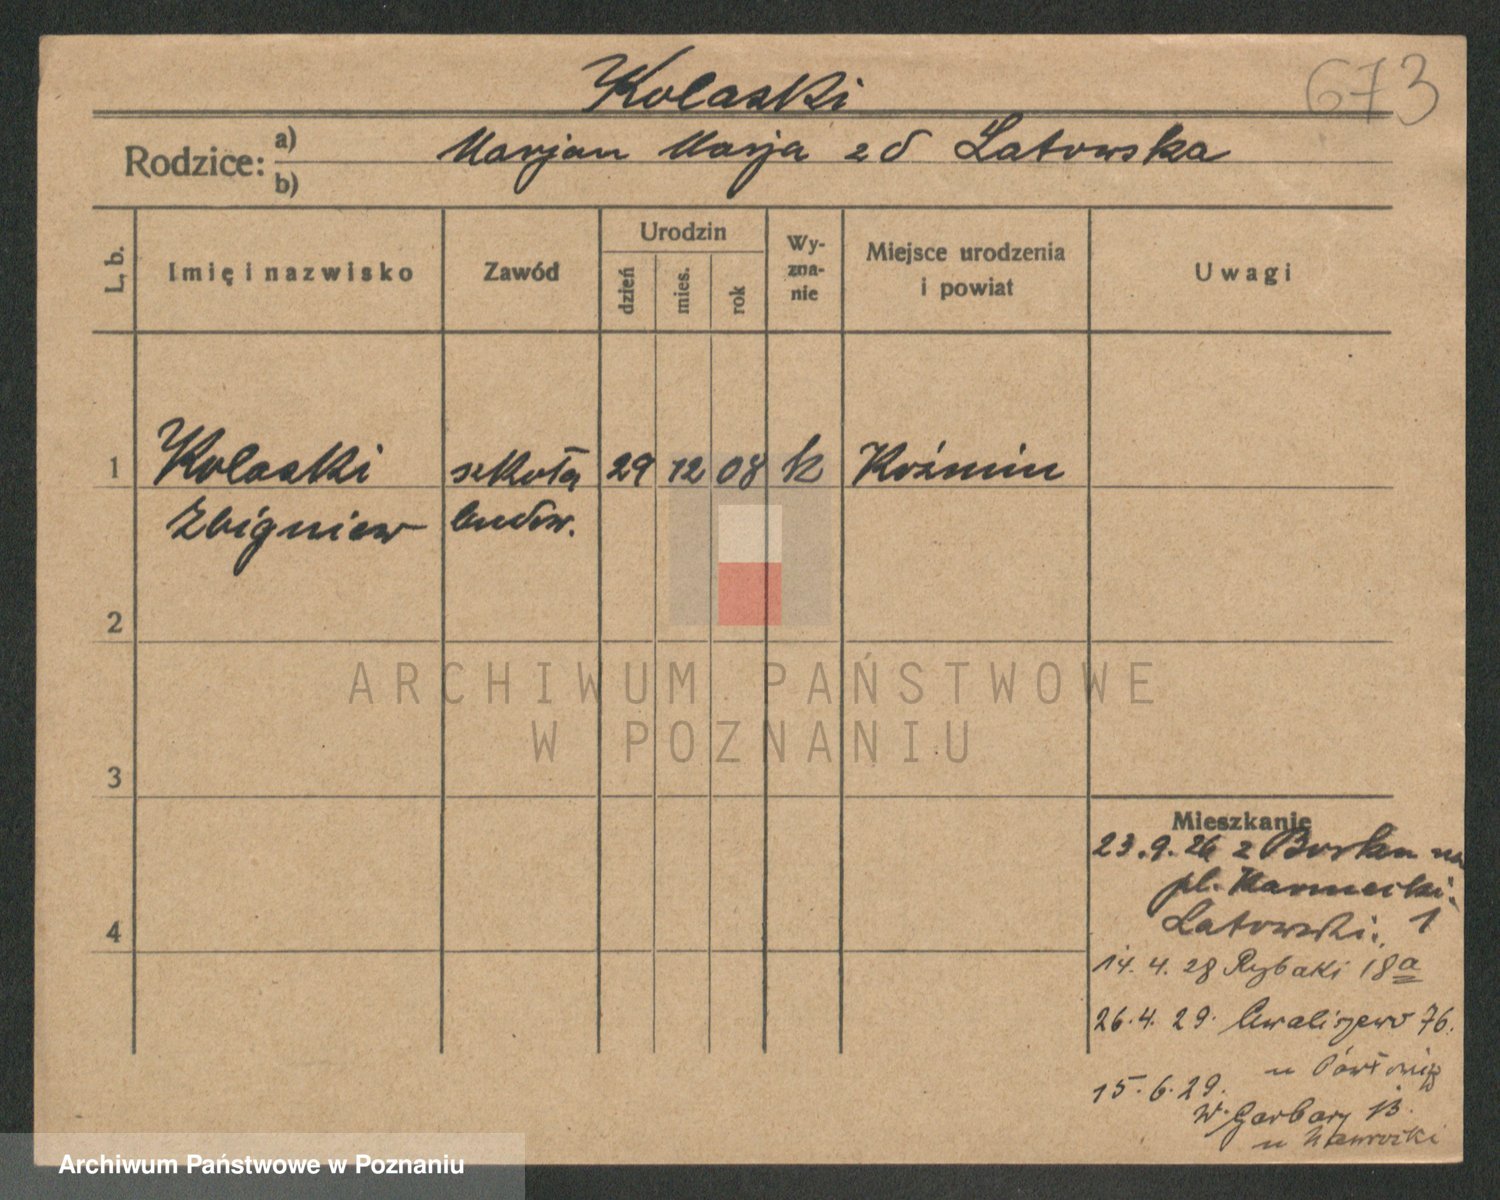 Kolaski
673
Rodzice: a) b)
Marjan Marja z d Latowska
L. b.
Imię i nazwisko
Zawód
Urodzin
dzień
mies.
rok
Wy-
zna-
nie
Miejsce urodzenia
i powiat
Uwagi
1 Kolaski szkoła 29 12 08 k Koźmin
Zbigniew budow.
2
3
4
Mieszkanie
23.9.26 z na
pl.
Latowski. 1
14. 4. 28 Rybaki 18a
26.4. 29. Chwaliszewo 76.
u
15.6.29.
W. Garbary 13.
u Nawrocki
ARCHIWUM PAŃSTWOWE
W POZNANIU
Archiwum Państwowe w Poznaniu